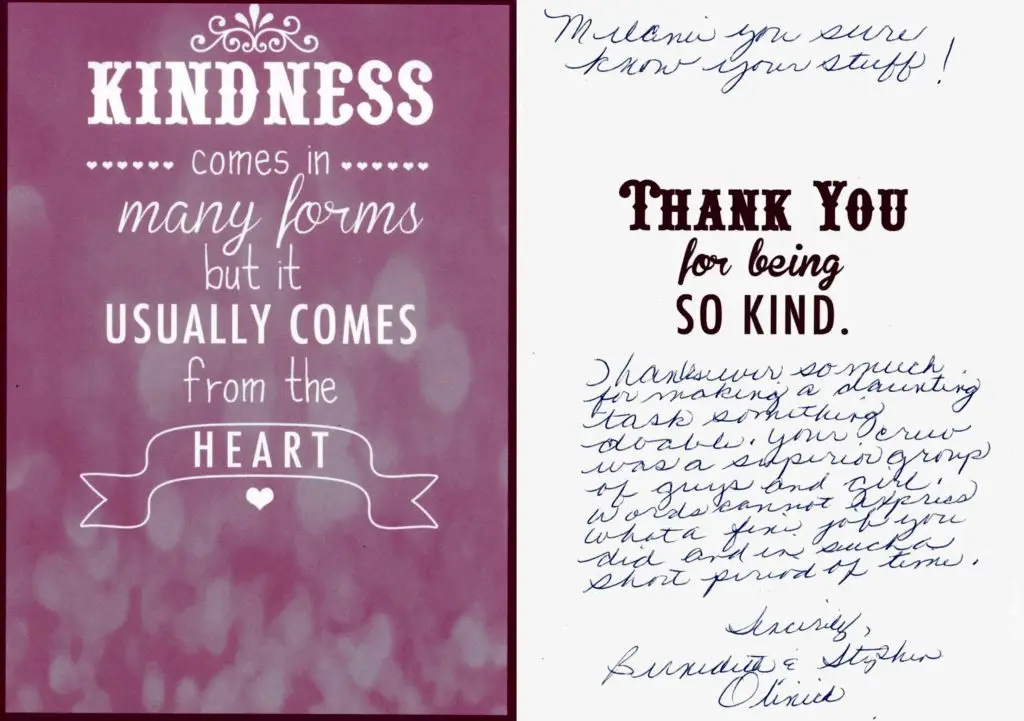 KINDNESS
comes in
many forms
but it
USUALLY COMES
from the
HEART
Melanie you sure
know your stuff!
THANK YOU
for being
SO KIND.
Thanks ever so much
for making a daunting
task something
doable. Your crew
was a superior group
of guys and girl.
Words cannot express
what a fine job you
did and in such a
short period of time.
Sincerely,
& Stephen